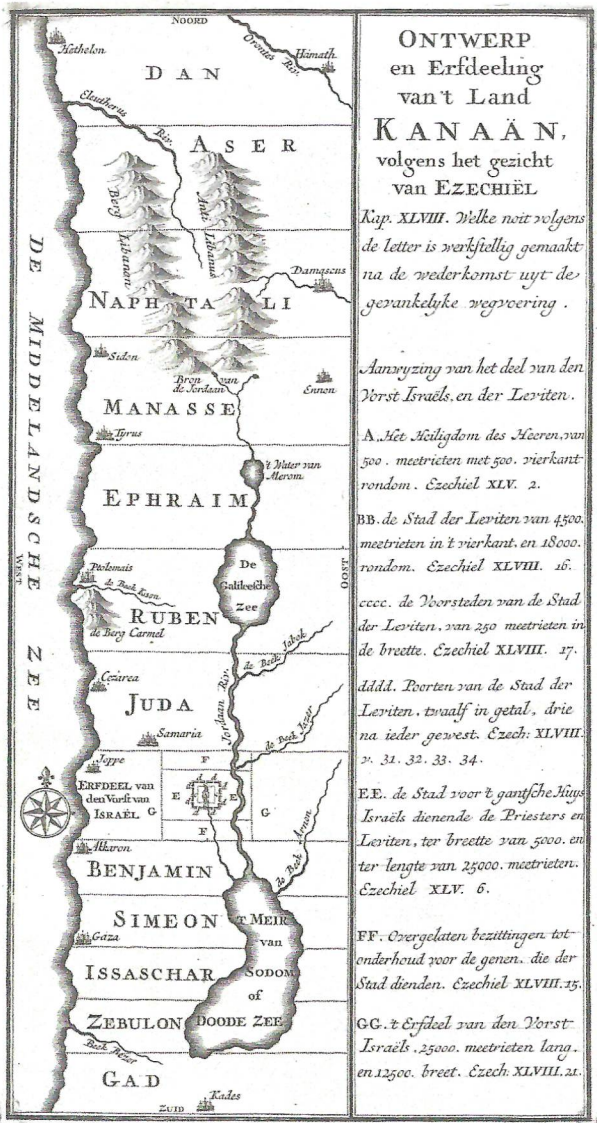 NOORD
Hethelon
Orontes Riv.
Hamath
DAN
Eleutherus Riv.
ASER
Berg Libanon
Ante Libanus
Damascus
NAPHTALI
Sidon
Bron van de Jordaan
Ennon
MANASSE
Tyrus
't Water van
Merom
EPHRAIM
De
Galileesche
Zee
WEST
OOST
Ptolomais
de Beek Kison
RUBEN
de Berg Carmel
de Beek Jabok
Cezarea
JUDA
Jordaan Riv.
Samaria
de Beek Jazer
Joppe
ERFDEEL van
den Vorst van
ISRAËL G
F
d d d
E E
F
G
Akkaron
BENJAMIN
de Beek Arnon
SIMEON
't MEIR
van
SODOM
of
DOODE ZEE
Gaza
ISSASCHAR
ZEBULON
GAD
Kades
ZUID
DE MIDDELANDSCHE ZEE
ONTWERP
en Erfdeeling
van't Land
KANAÄN,
volgens het gezicht
van EZECHIËL
Kap. XLVIII. Welke noit volgens
de letter is werkstellig gemaakt
na de wederkomst uyt de
gevankelyke wegvoering.
Aanwyzing van het deel van den
Vorst Israëls, en der Leviten.
A. Het Heiligdom des Heeren, van
500. meetrieten met 500. vierkant
rondom. Ezechiel XLV. 2.
BB. de Stad der Leviten van 4500.
meetrieten in 't vierkant. en 18000.
rondom. Ezechiel XLVIII. 16.
cccc. de Voorsteden van de Stad
der Leviten, van 250 meetrieten in
de breette. Ezechiel XLVIII. 17.
dddd. Poorten van de Stad der
Leviten, twaalf in getal, drie
na ieder gewest. Ezech: XLVIII.
v. 31. 32. 33. 34.
EE. de Stad voor 't gantsche Huys
Israëls dienende de Priesters en
Leviten, ter breette van 5000. en
ter lengte van 25000. meetrieten.
Ezechiel XLV. 6.
FF. Overgelaten bezittingen tot
onderhoud voor de genen, die der
Stad dienden. Ezechiel XLVIII. 15.
GG. 't Erfdeel van den Vorst
Israëls. 25000. meetrieten lang.
en 12500. breet. Ezech: XLVIII. 21.